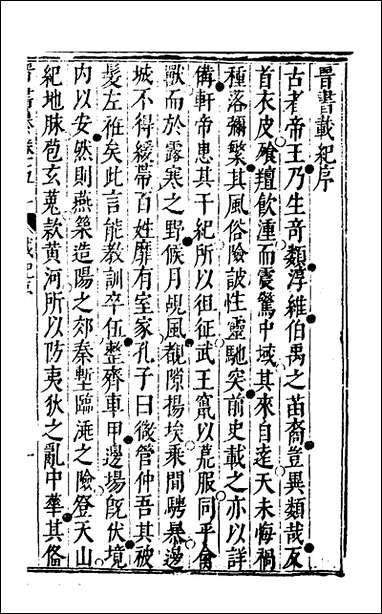 晉書載紀序
古者帝王乃生奇類淳維伯禹之苗裔豈異類哉反
首衣皮飱羶飲湩而震驚中域其來自遠天未悔禍
種落彌繁其風俗險詖性靈馳突前史載之亦以詳
俻軒帝患其干紀所以徂征武王竄以荒服同乎禽
獸而於露寒之野候月覘風覩隙揚埃乘間騁暴邊
城不得緩帶百姓靡有室家孔子曰微管仲吾其被
髮左衽矣此言能教訓卒伍整齊車甲邊塲旣伏境
內以安然則燕築造陽之郊秦塹臨洮之險登天山
紀地脉苞玄菟款黃河所以防夷狄之亂中華其俻